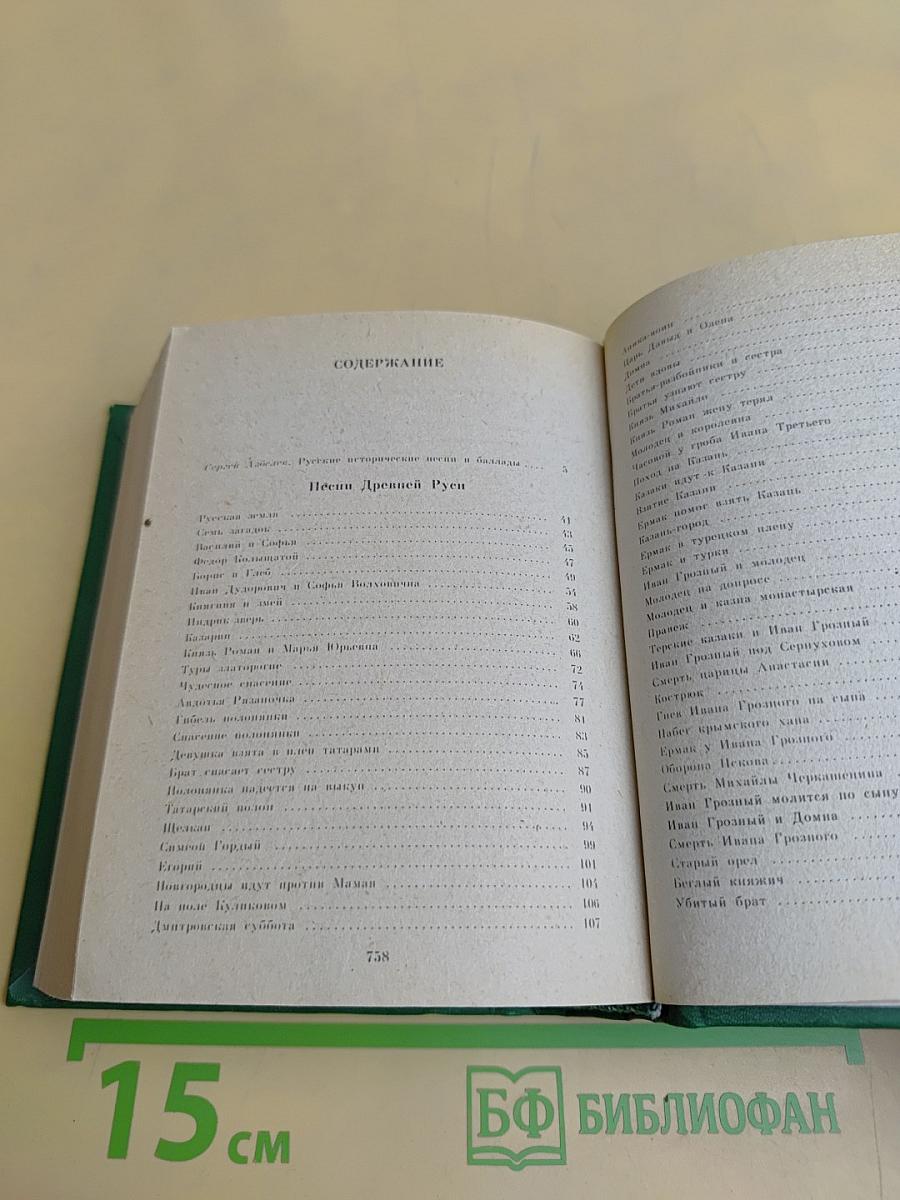 СОДЕРЖАНИЕ
Сергей Азбелев. Русские исторические песни и баллады .... 5
Песни Древней Руси
Русская земля 41
Семь загадок 43
Василий и Софья 45
Федор Колыщатой 47
Борис и Глеб 49
Иван Дудорович и Софья Волховична 54
Княгиня и змей 58
Индрик зверь 60
Казарин 62
Князь Роман и Марья Юрьевна 66
Туры златорогие 72
Чудесное спасение 74
Авдотья Рязаночка 77
Гибель полонянки 81
Спасение полонянки 83
Девушка взята в плен татарами 85
Брат спасает сестру 87
Полонянка надеется на выкуп 90
Татарский полон 91
Щелкан 94
Симеой Гордый 99
Егорий 101
Новгородцы идут против Мамая 104
На поле Куликовом 106
Дмитровская суббота 107
758
Аника-воин
Царь Давыд и Олена
Домна
Дети вдовы
Братья-разбойники и сестра
Братья узнают сестру
Князь Михайло
Князь Роман жену терял
Молодец и королевна
Часовой у гроба Ивана Третьего
Поход на Казань
Казаки идут к Казани
Взятие Казани
Ермак помог взять Казань
Казань-город
Ермак в турецком плену
Ермак и турки
Иван Грозный и молодец
Молодец на допросе
Молодец и казна монастырская
Правеж
Терские казаки и Иван Грозный
Иван Грозный под Серпуховом
Смерть царицы Анастасии
Кострюк
Гнев Ивана Грозного на сына
Набег крымского хана
Ермак у Ивана Грозного
Оборона Пскова
Смерть Михайлы Черкашенина
Иван Грозный молится по сыну
Иван Грозный и Домна
Смерть Ивана Грозного
Старый орел
Беглый княжич
Убитый брат
15 см
БФ БИБЛИОФАН